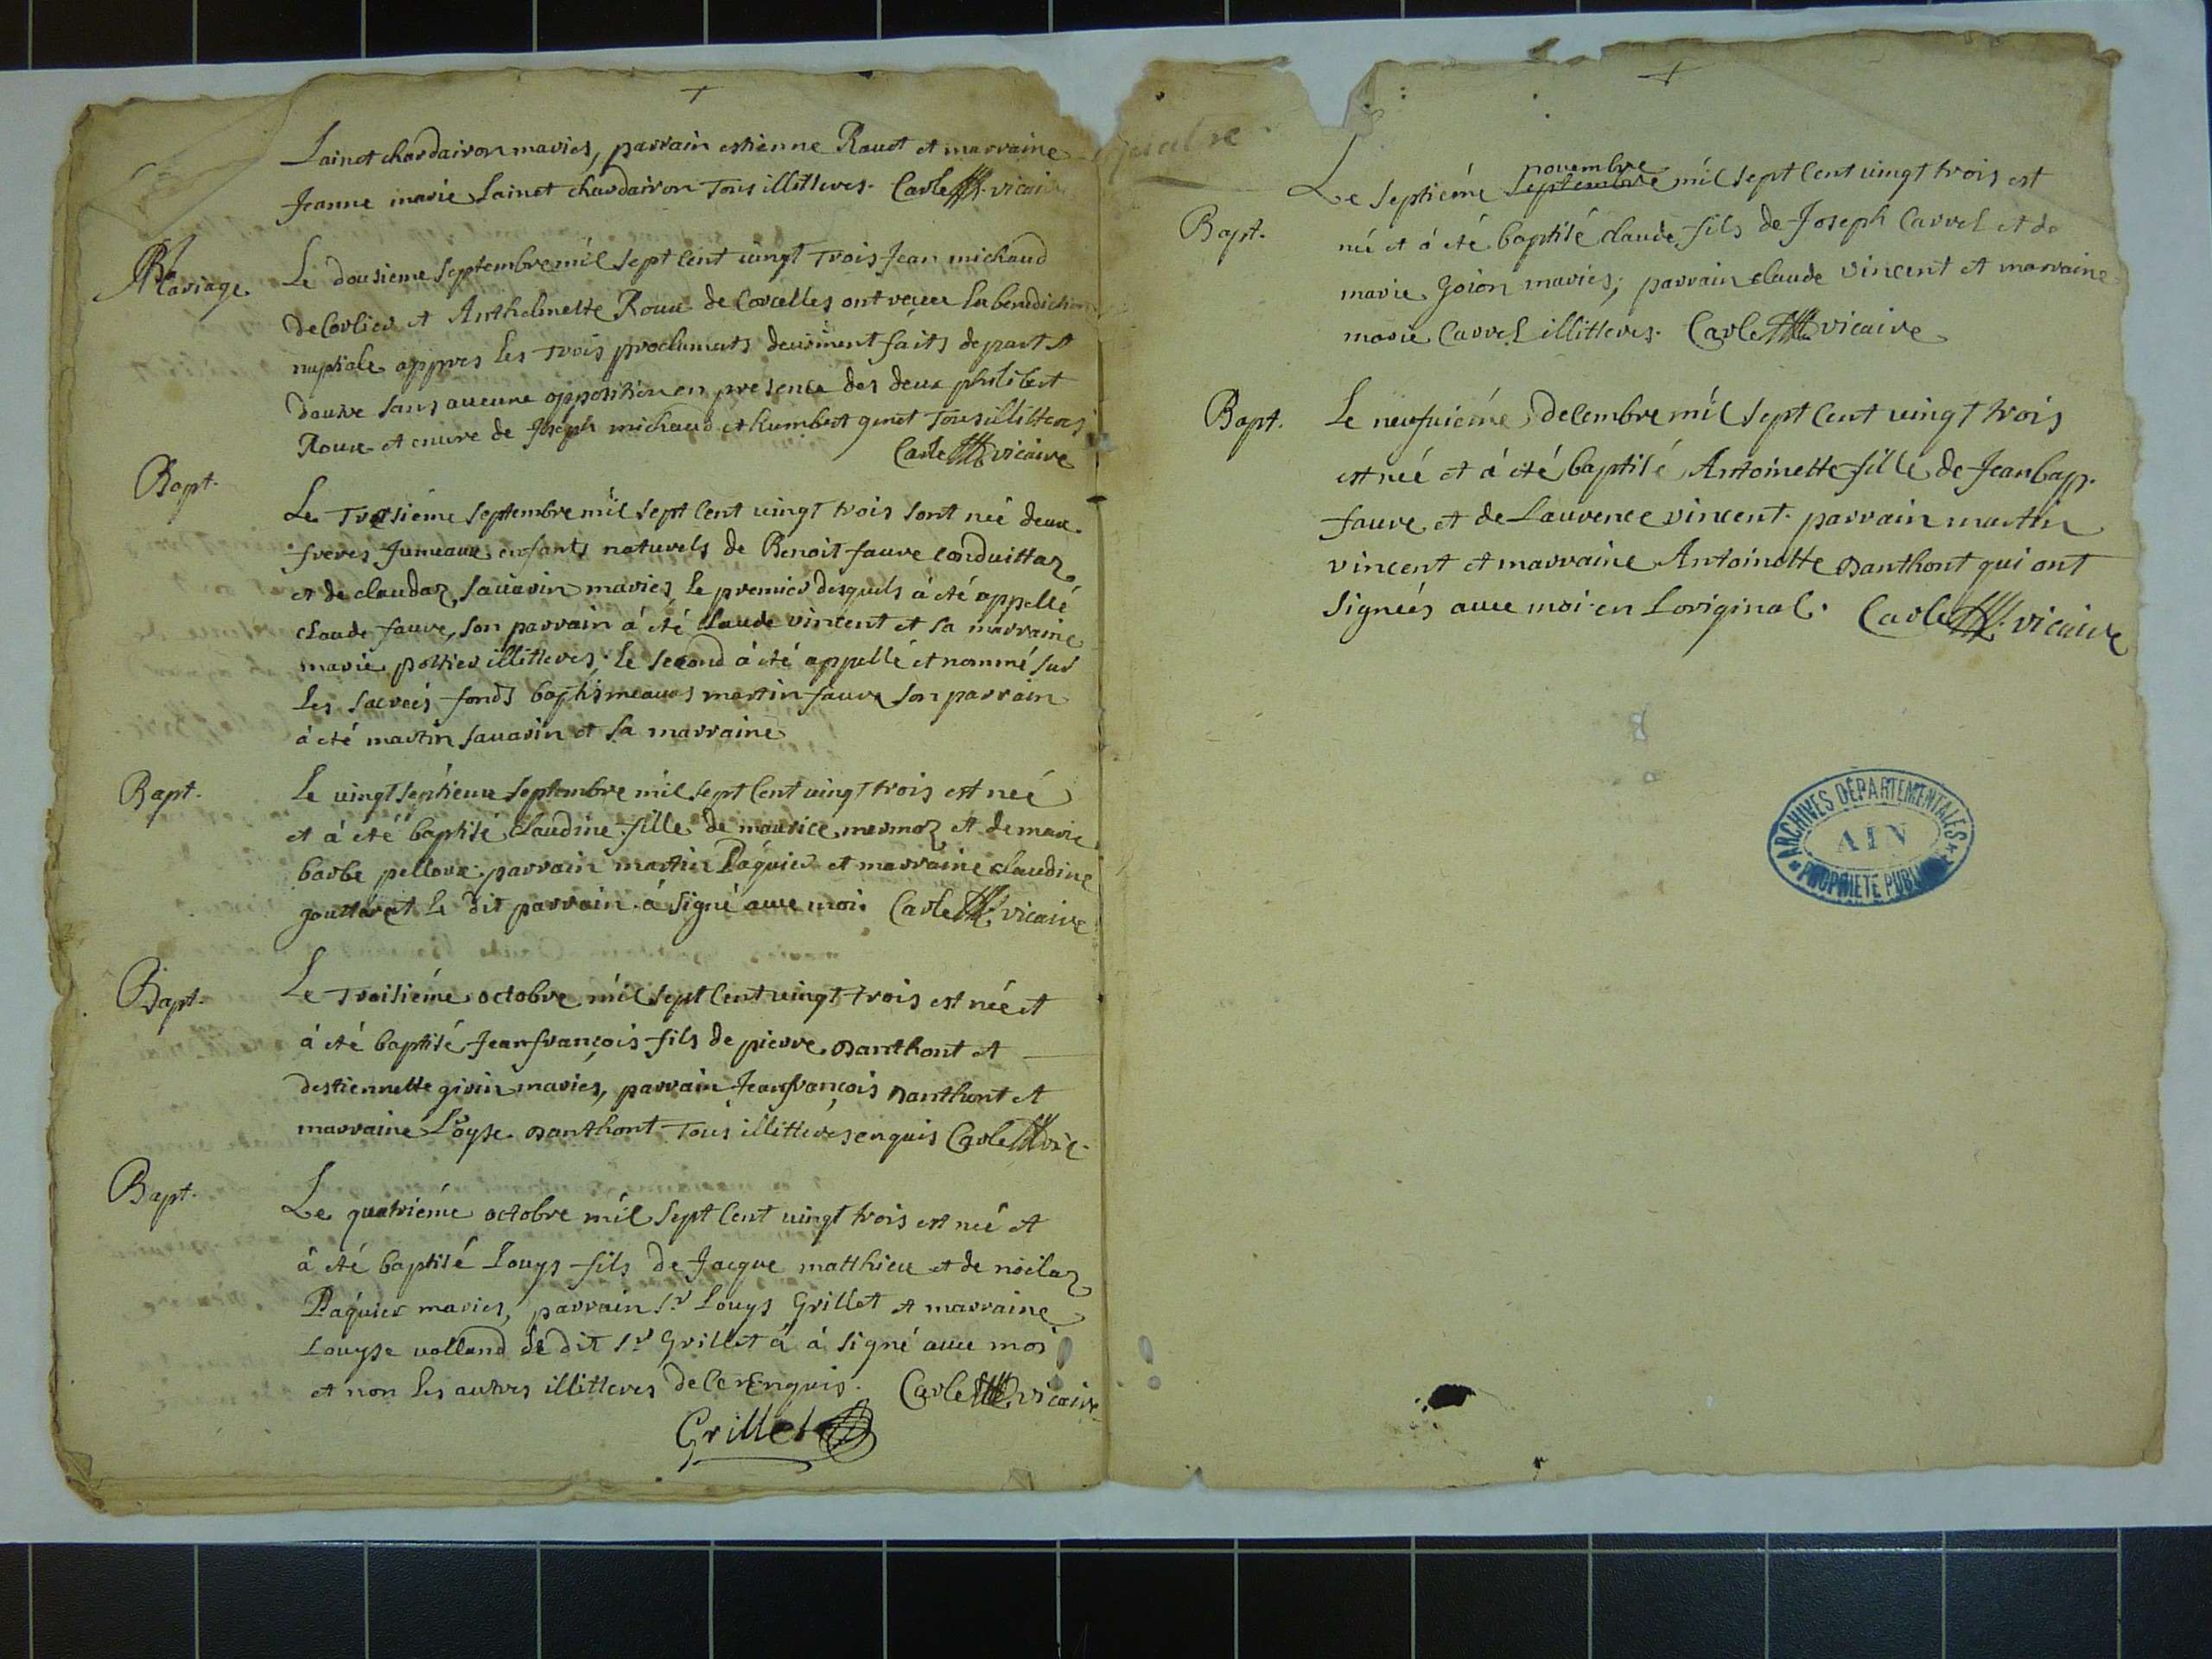 Lainet chardairon mariés, parrain estienne Rauet et marraine
Jeanne marie Lainet chardairon Tous illitteres. Carle vicaire
Mariage
Le dousieme septembre mil sept cent uingt Trois Jean michaud
de Corlier et Anthelmette Roux de Corcelles ont receu la benediction
nuptiale appres les trois proclamats deuëment faits de part et
dautre sans aucune opposition en presence des deux philibert
Roux et encore de Joseph michaud et humbert genet Tous illitteres
Carle vicaire
Bapt.
Le Tresiéme septembre mil sept cent uingt trois sont neé deux
freres Jumeaux enfants naturels de Benoit faure conduittaz
et de claudaz sauarin mariés, le premier desquels à été appellé
claude faure, son parrain à été claude vincent et sa marraine
marie pottier illitteres; le second à été appellé et nommé sur
les sacreés fonds baptismeaux martin faure son parrain
à été martin sauarin et sa marraine
Bapt.
Le uingt septieme septembre mil sept cent uingt trois est neé
et à été baptisé claudine fille de maurice mermoz et de marie
barbe pelloux. parrain martin Pâquier et marraine claudine
gouttaret le dit parrain à signé auec moi. Carle vicaire
Bapt.
Le Troisiéme octobre mil sept cent uingt trois est neé et
à été baptisé Jeanfrançois fils de pierre Danthont et
destiennette girin mariés, parrain Jeanfrançois Danthont et
marraine Loyse Danthont Tous illitteres enquis Carle vic.
Bapt.
Le quatriéme octobre mil sept cent uingt trois est neé et
à été baptisé Louys fils de Jacque matthieu et de noilaz
Pâquier mariés, parrain Sr Louys Grillet et marraine
Louyse uolland le dit Sr Grillet à à signé auec moi
et non les autres illitteres de ce Enquis. Carle vicaire
Grillet
quatre
Bapt.
novembre
Le septiéme septembre mil sept cent uingt trois est
né et à été baptisé claude fils de Joseph Carrel et de
marie Goion mariés; parrain claude vincent et marraine
marie Carrel illitteres. Carle vicaire
Bapt.
Le neufuiéme decembre mil sept cent uingt trois
est neé et à été baptisé Antoinette fille de Jean bap.
faure et de Laurence vincent. parrain martin
vincent et marraine Antoinette Danthont qui ont
signeés auec moi en Loriginal. Carle vicaire
ARCHIVES DÉPARTEMENTALES
AIN
PROPRIÉTÉ PUBLIQUE